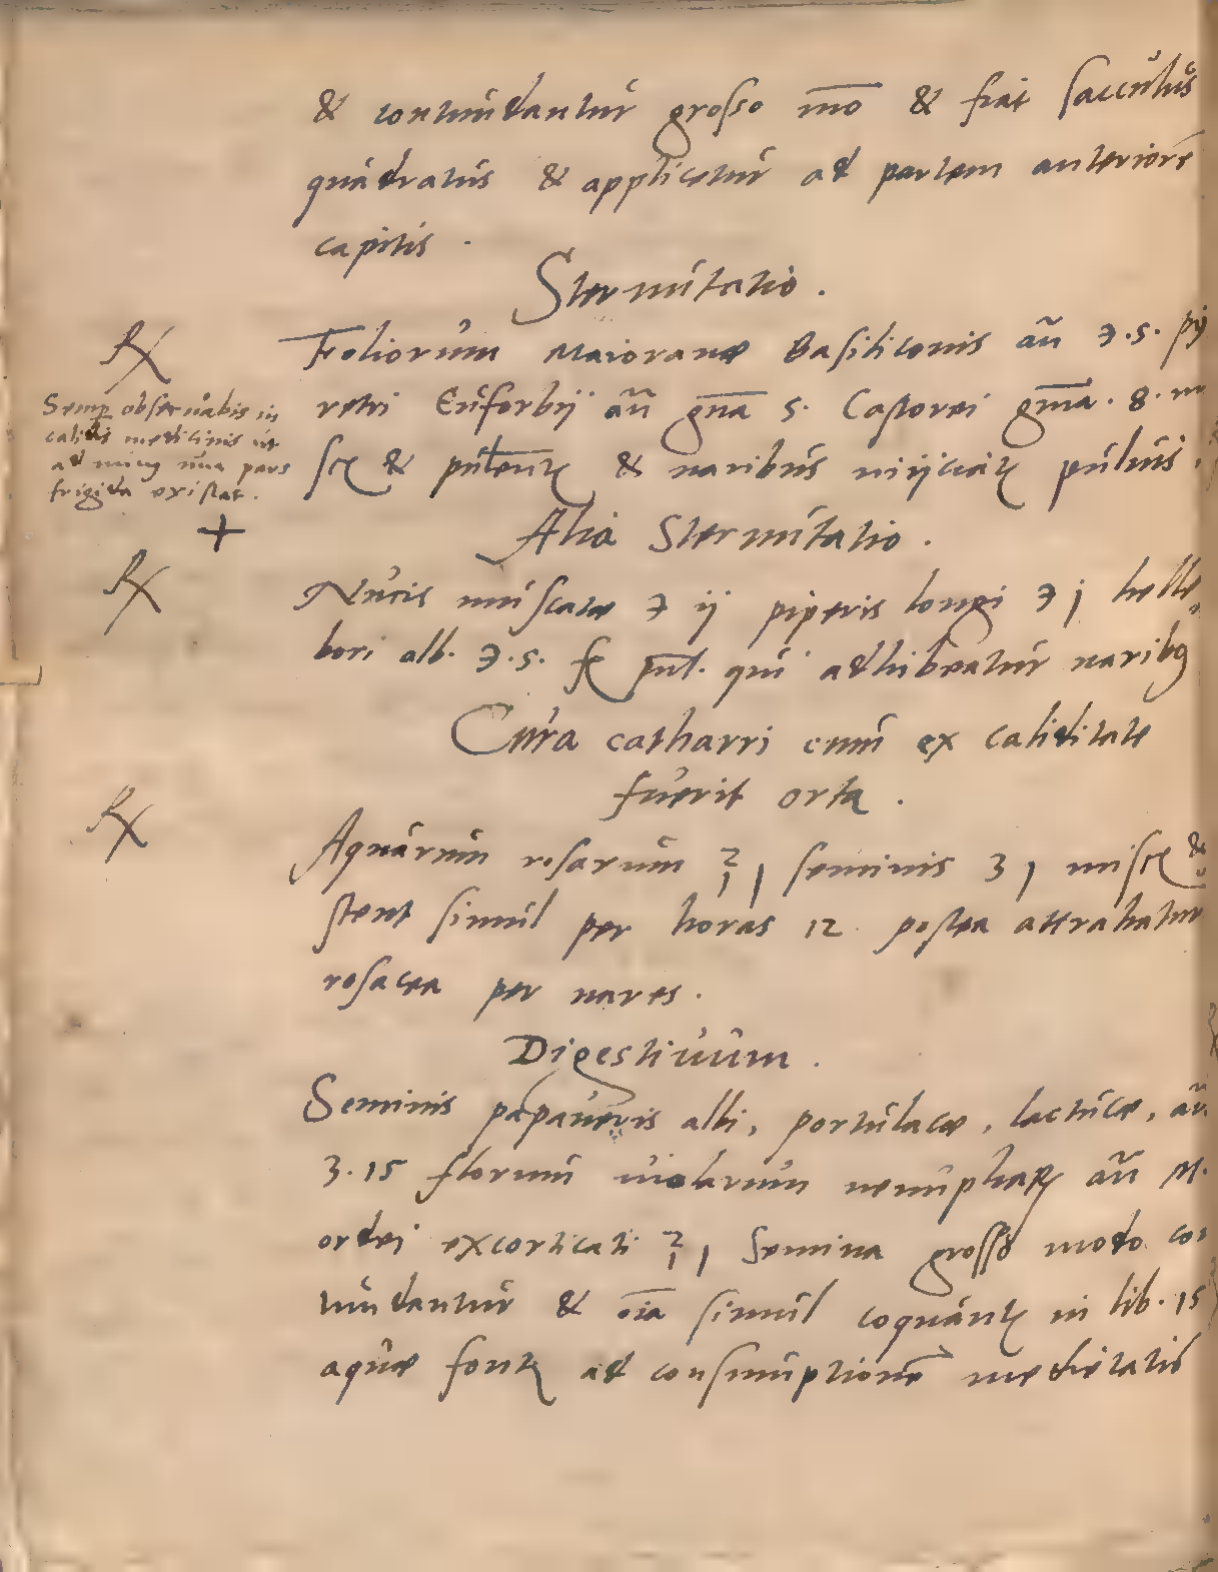 & contundantur grosso mo & fiat sacculus
quadratus & applicetur ad partem anteriorē
capitis .
Sternutatio .
℞ Foliorum Maioranæ Basiliconis añ ℈.s. py
retri Euforbij añ gña s. Castorei gma. 8. m
Semp observabis in
calidis medicinis ut
ad minq una pars
frigida existat .
+
scę & puluentꝛ & naribus inijciatꝛ puluis .
Alia Sternutatio .
℞ Nucis muscatæ ℈ ij piperis longi ℈ j helle
bori alb. ℈.s. f pul. qui adhibeatur naribꝯ
Cura catharri cum ex caliditate
fuerit orta .
℞ Aquarum rosarum ℥ j seminis ʒ j miscę &
stent simul per horas 12 postea attrahatur
rosacea per nares .
Digestivum .
Seminis papaueris albi, portulacæ, lactucæ, añ
ʒ. 15 florum uiolarum nenuphaꝝ añ M.
ordei excorticati ℥ j Semina grosso modo con
tundantur & oīa simul coquantꝛ in lib. 15
aquæ fontꝭ ad consumptionē medietatis